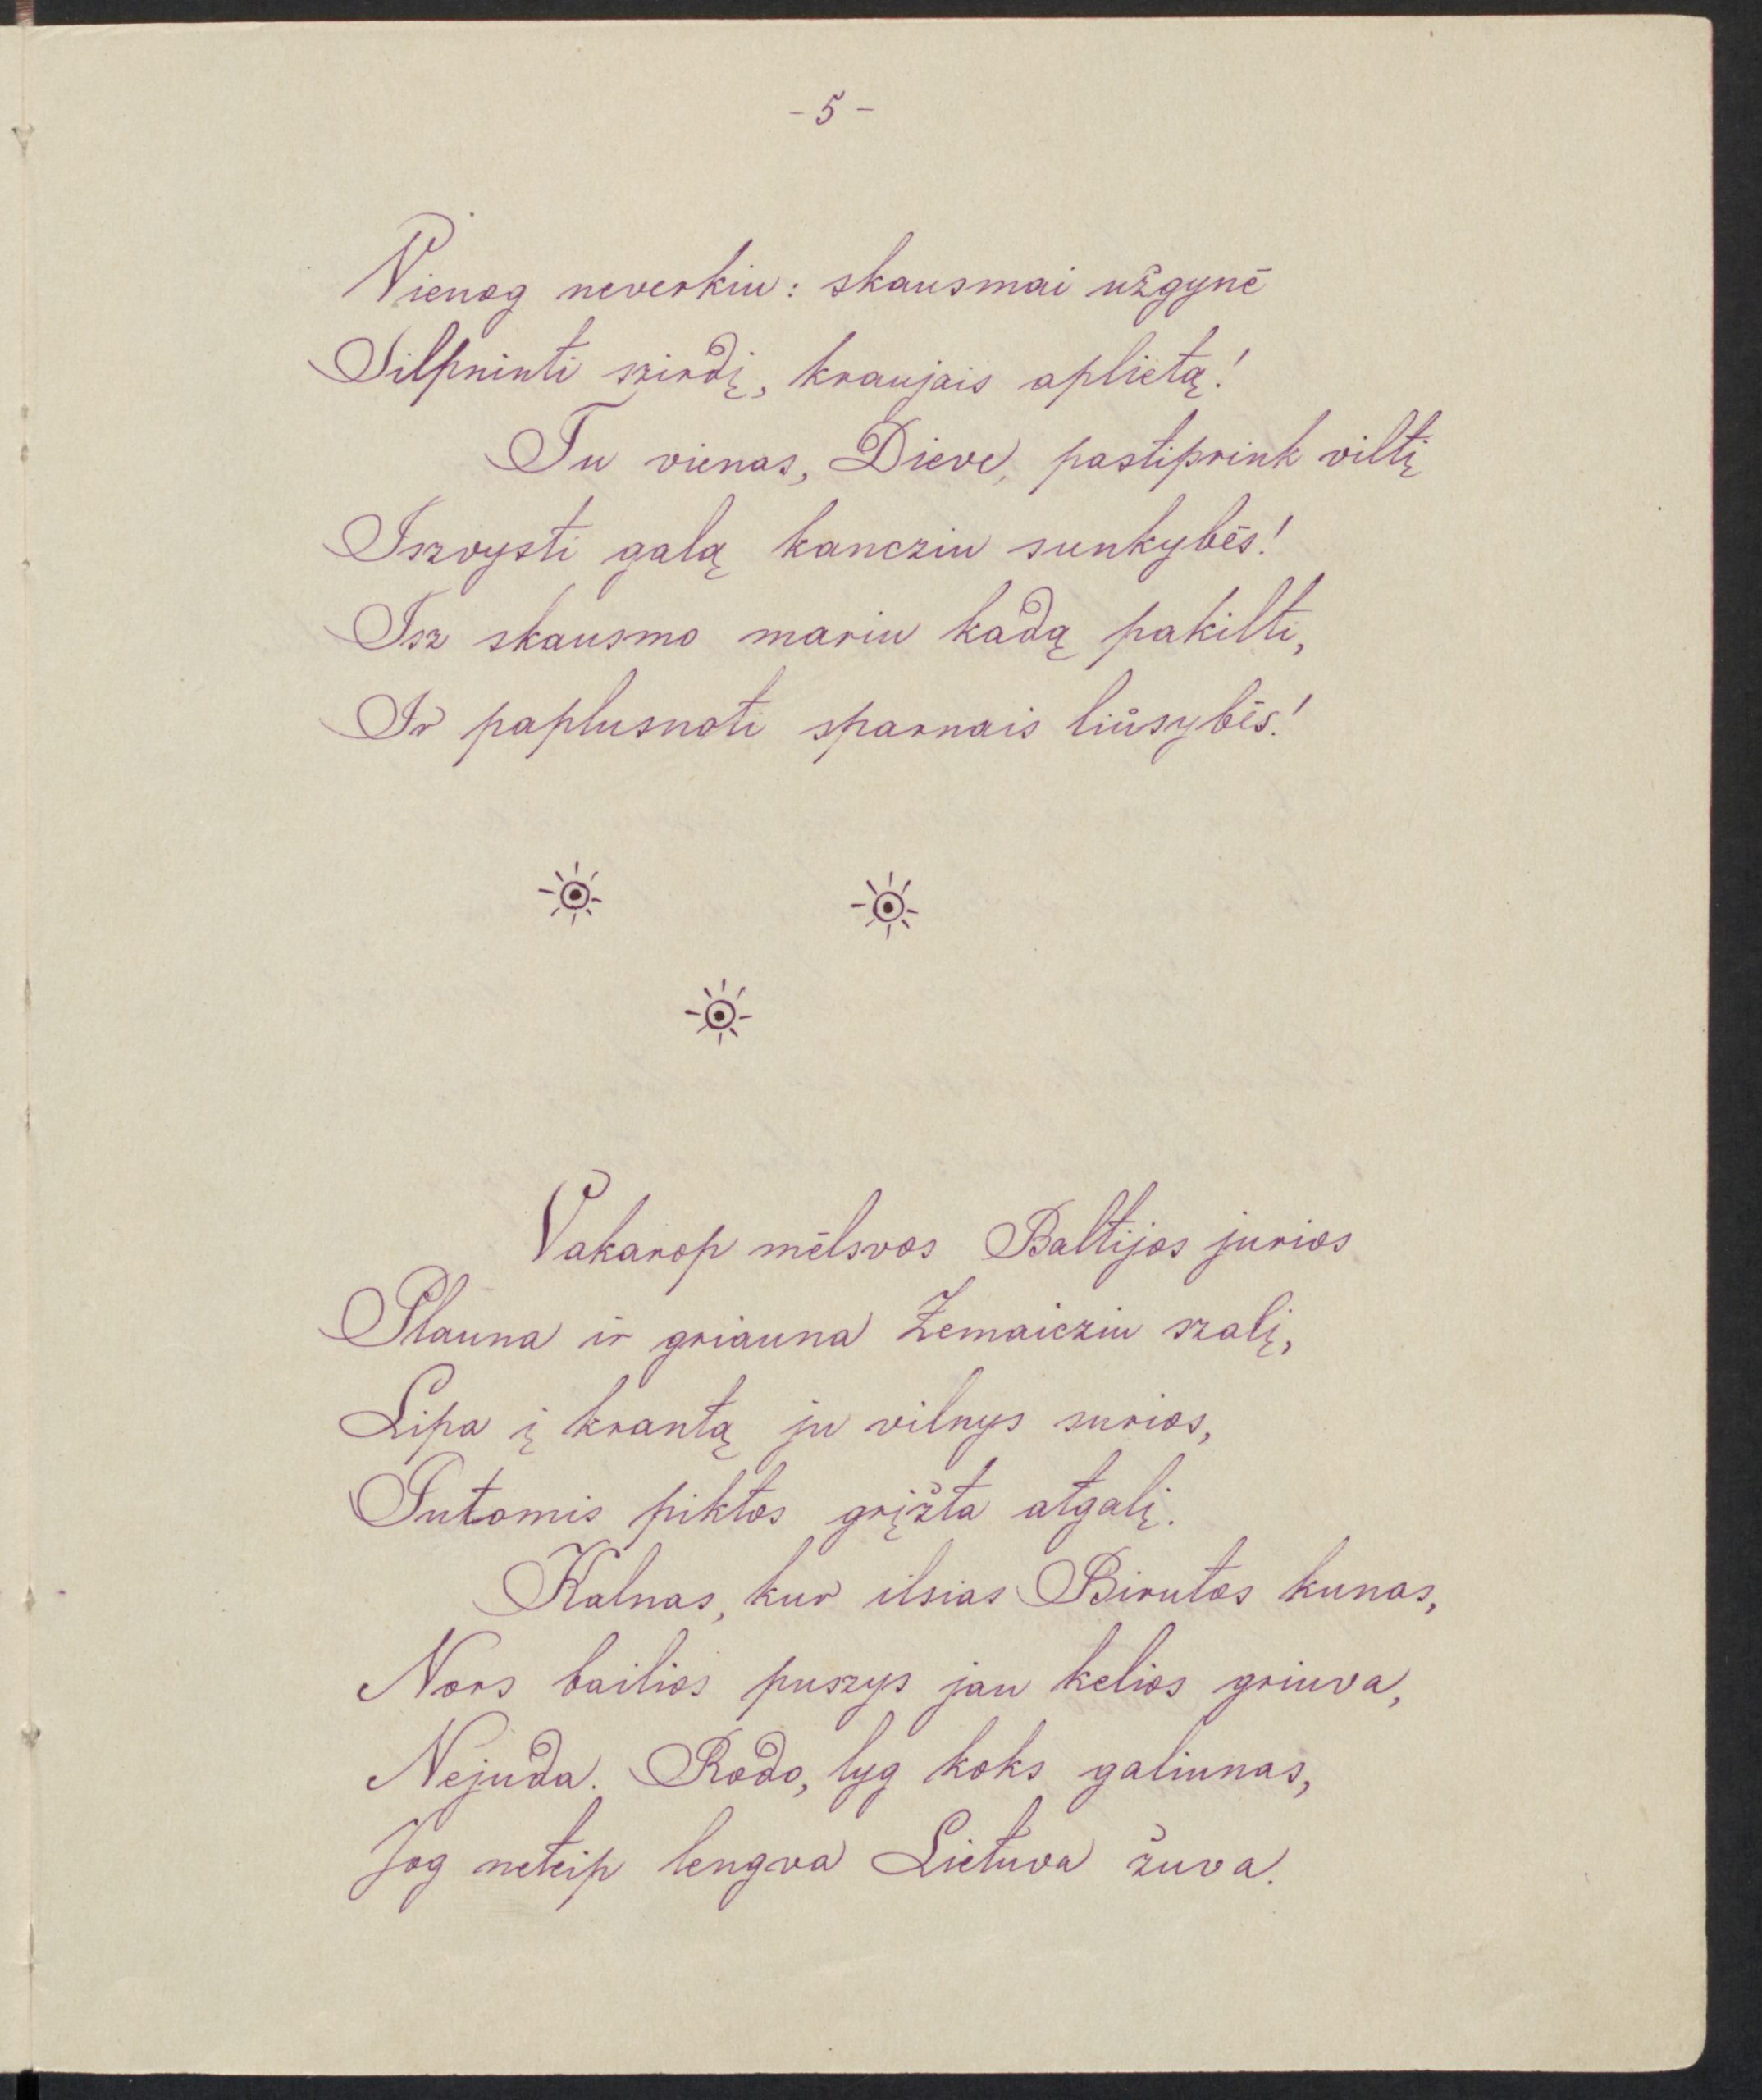 - 5 -
Vienog neverkiu: skausmai užgynė
Silpninti szirdį, kraujais aplietą!
Tu vienas, Dieve, pastiprink viltį
Iszvysti galą kancziu sunkybės!
Isz skausmo mariu kadą pakilti,
Ir paplusnoti sparnais liůsybės!
Vakarop mėlsvos Baltijos jurios
Plauna ir griauna Žemaicziu szalį,
Lipa į krantą ju vilnys surios,
Putomis piktos grįžta atgalį.
Kalnas, kur ilsias Birutos kunas,
Nors bailios puszys jau kelios griuva,
Nejuda. Rodo, lyg koks galiunas,
Jog neteip lengva Lietuva žuva.